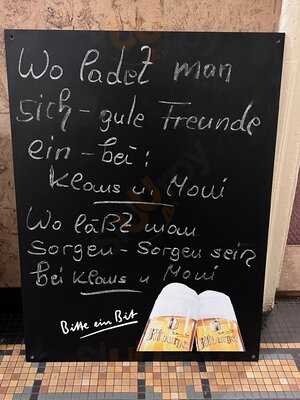 Wo ladet man
sich - gute Freunde
ein - bei:
Klaus u. Moni
Wo läßt man
Sorgen - Sorgen sein
Bei Klaus u Moni
Bitte ein Bit
Bitburger Bitburger